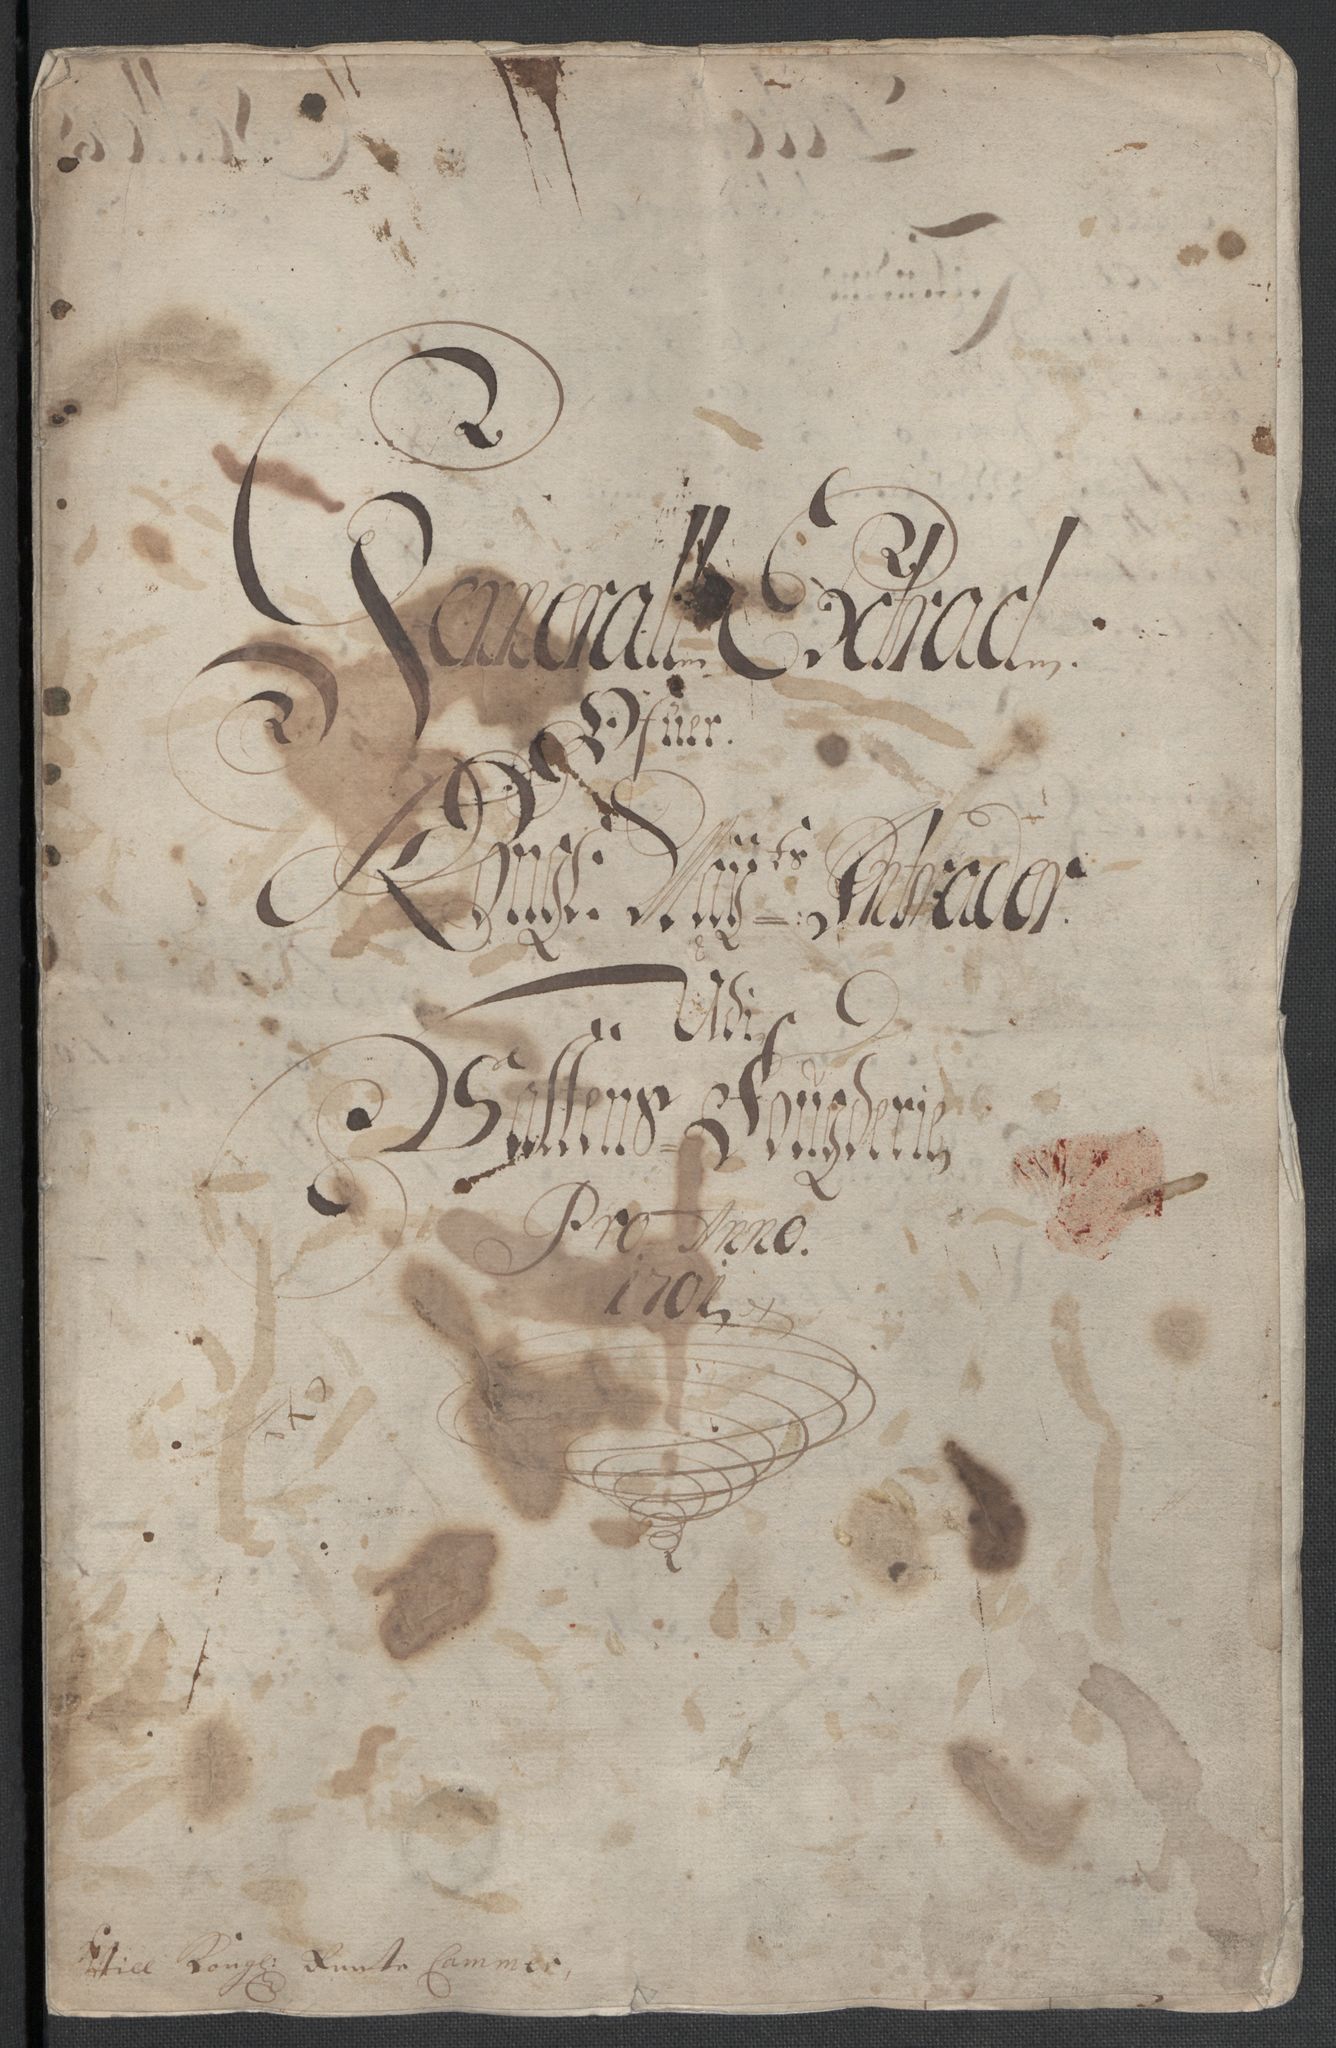 Generall Extract
Ofuer
Kongl: May:ts Intrader
Udi
Battens Fougderie
Pro Anno.
1701
Till Kongl: Rente Cammer,